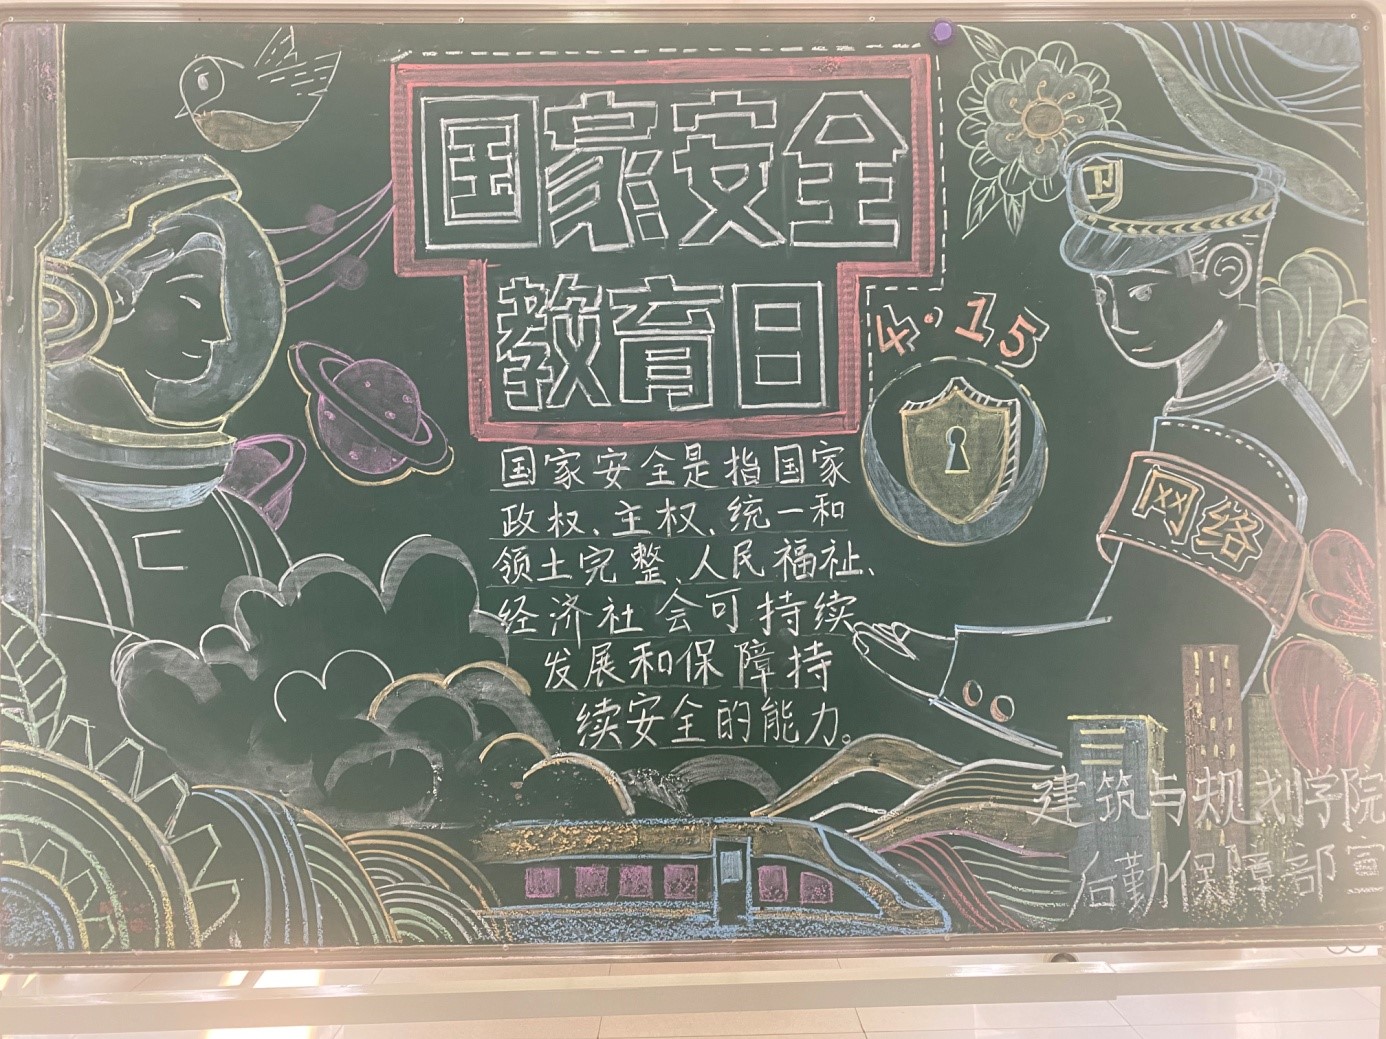 国家安全
教育日
4·15
国家安全是指国家
政权、主权、统一和
领土完整、人民福祉、
经济社会可持续
发展和保障持
续安全的能力。
卫
网络
建筑与规划学院
后勤保障部宣